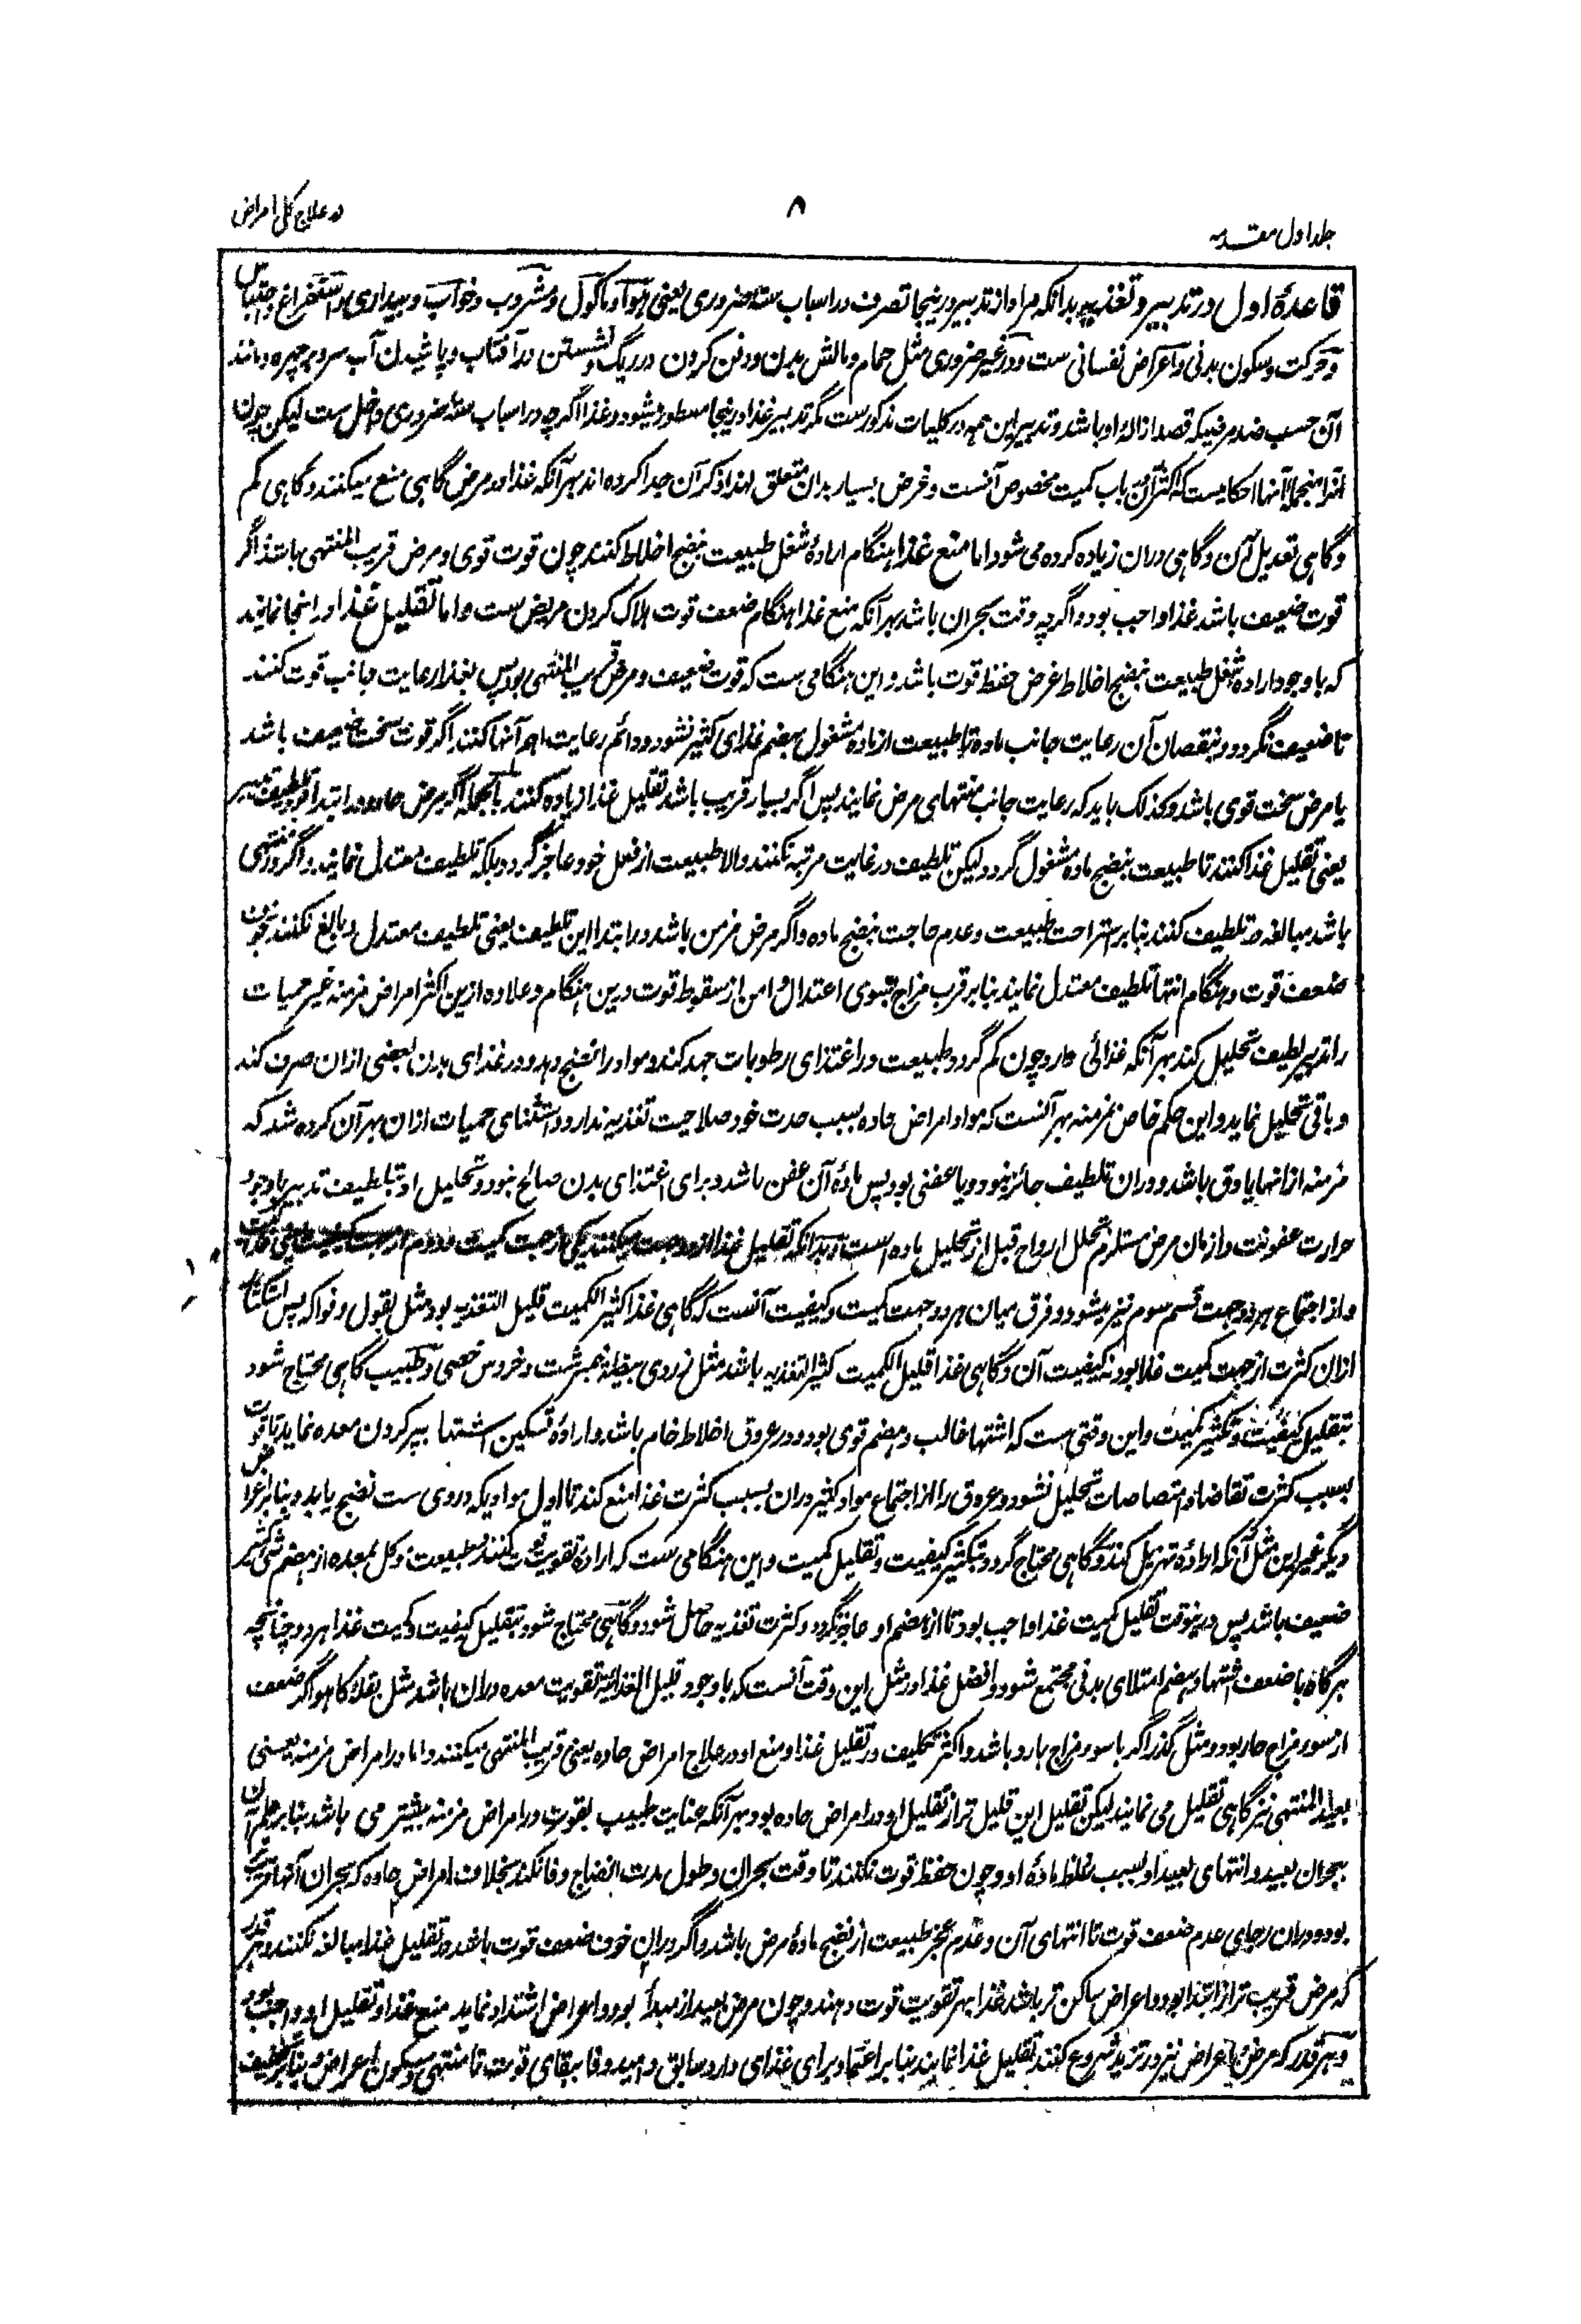 جلد اول مقدمه
۸
در علاج کل امراض
قاعدهٔ اول در تدبیر و تغذیه بدانکه مراد از تدبیر درینجا تصرف در اسباب ستهٔ ضروری یعنی هوا و ماکول و مشروب و خواب و بیداری و استفراغ و احتباس
و حرکت و سکون بدنی و اعراض نفسانی ست و در غیر ضروری مثل حمام و مالش بدن و دفن کردن در ریگ و نشستن در آفتاب و پاشیدن آب سرد بر چهره و مانند
آن حسب ضد مرضیکه قصد ازالهٔ او باشد و تدبیر این همه در کلیات مذکورست مگر تدبیر غذا درینجا مسطور میشود و غذا اگرچه در اسباب ستهٔ ضروری داخل ست لیکن چون
آنرا منجملهٔ آنها احکامیست که اکثر آن باب کمیت مخصوص آنست و غرض بسیار بدان متعلق لهذا ذکر آن جدا کرده‌اند بهر آنکه غذا در مرض گاهی منع میکنند و گاهی کم
و گاهی تعدیل آن و گاهی دران زیاده کرده می شود اما منع غذا هنگام ارادهٔ شغل طبیعت بنضج اخلاط کنند چون قوت قوی و مرض قریب المنتهی باشد و اگر
قوت ضعیف باشد غذا واجب بود و اگرچه وقت بحران باشد بهر آنکه منع غذا هنگام ضعف قوت هلاک کردن مریض ست و اما تقلیل غذا در انجا نمایند
که با وجود اراده شغل طبیعت بنضج اخلاط غرض حفظ قوت باشد و این هنگامی ست که قوت ضعیف و مرض قریب المنتهی بود پس بغذا رعایت جانب قوت کنند
تا ضعیف نگردد و بنقصان آن رعایت جانب ماده تا طبیعت از ماده مشغول بهضم غذای کثیر نشود و دائم رعایت اهم آنها کنند اگر قوت سخت ضعیف باشد
یا مرض سخت قوی باشد و کذلک باید که رعایت جانب منتهای مرض نمایند پس اگر بسیار قریب باشد تقلیل غذا زیاده کنند بالجمله اگر مرض حاد بود در ابتدا تلطیف تدبیر
یعنی تقلیل غذا کنند تا طبیعت بنضج ماده مشغول گردد لیکن تلطیف در غایت مرتبه نکنند والا طبیعت از فعل خود عاجز گردد بلکه تلطیف معتدل نمایند و اگر در منتهی
باشد مبالغه در تلطیف کنند بنابر استراحت طبیعت و عدم حاجت بنضج ماده و اگر مرض مزمن باشد در ابتدا این تلطیف یعنی تلطیف معتدل و بالغ نکنند خوف
ضعف قوت و هنگام انتها تلطیف معتدل نمایند بنابر قرب مزاج بسوی اعتدال و امن از سقوط قوت درین هنگام و علاوه ازین اکثر امراض مزمنه غیر حمیات
را تدبیر لطیف تحلیل کند بهر آنکه غذائی وارد چون کم گردد طبیعت در اغتذای رطوبات جهد کند و مواد را نضج دهد و در غذای بدن بعضی ازان صرف کند
و باقی تحلیل نماید و این حکم خاص بمزمنه بهر آنست که مواد امراض حاده بسبب حدت خود صلاحیت تغذیه ندارد و استثنای حمیات ازان بهر آن کرده شد که
مزمنه ازانها یا دق باشد و دران تلطیف جائز نبود و یا عفنی بود پس مادهٔ آن عفن باشد و برای اغتذای بدن صالح نبود و تحلیل او بتلطیف تدبیر با وجود
حرارت عفونت و ازمان مرض مستلزم تحلل ارواح قبل از تحلیل ماده است و بدانکه تقلیل غذا از دو جهت میکنند یکی از جهت کمیت و دوم از جهت کیفیت یعنی
و از اجتماع هر دو جهت قسم سوم نیز میشود و فرق میان هر دو جهت کمیت و کیفیت آنست که گاهی غذا کثیر الکمیت قلیل التغذیه بود مثل بقول و فواکه پس استکثار
ازان کثرت از جهت کمیت غذا بود نه کیفیت آن و گاهی غذا قلیل الکمیت کثیر التغذیه باشد مثل زردی بیضهٔ نیمبرشت و خروس خصی و طبیب گاهی محتاج شود
بتقلیل کیفیت و تکثیر کمیت و این وقتی ست که اشتها غالب و هضم قوی بود و در عروق اخلاط خام باشد و ارادهٔ تسکین اشتها بپر کردن معده نماید تا قوت
بسبب کثرت تقاضا و امتصاصات تحلیل نشود و عروق را از اجتماع مواد کثیر دران بسبب کثرت غذا منع کند تا اول موادیکه در وی ست نضج یابد و بنابر اغراض
دیگر غیر این مثل آنکه ارادهٔ تهزیل کند و گاهی محتاج گردد بتکثیر کیفیت و تقلیل کمیت و این هنگامی ست که ارادهٔ تقویت قوت کنند و طبیعت موکل بمعده از هضم شی کثیر
ضعیف باشد پس درینوقت تقلیل کمیت غذا واجب بود تا از هضم او عاجز نگردد و کثرت تغذیه حاصل شود و گاهی محتاج شود بتقلیل کیفیت و کمیت غذا هر دو چنانچه
هرگاه با ضعف اشتها و هضم امتلای بدنی مجتمع شود و افضل غذا در مثل این وقت آنست که با وجود قلیل الغذائیة تقویت معده دران باشد مثل بقلهٔ کاهو اگر ضعف
از سوء مزاج حار بود و مثل گذر اگر با سوء مزاج بارد باشد و اکثر تکلیف در تقلیل غذا و منع او در علاج امراض حاده یعنی قریب المنتهی میکنند و اما در امراض مزمنه یعنی
بعید المنتهی نیز گاهی تقلیل می نمایند لیکن تقلیل این قلیل تر از تقلیل او در امراض حاده بود بهر آنکه عنایت طبیب بقوت در امراض مزمنه بیشتر می باشد بنابر علم آن
ببحران بعید و انتهای بعید او بسبب غلظ مادهٔ او و چون حفظ قوت نکنند تا وقت بحران و طول مدت انضاج وفا نکند بخلاف امراض حاده که بحران آنها قریب
بود و دران رجای عدم ضعف قوت تا انتهای آن و عدم عجز طبیعت از نضج مادهٔ مرض باشد و اگر دران خوف ضعف قوت باشد در تقلیل غذا مبالغه نکنند و هر قدر
که مرض قریب تر از ابتدا بود و اعراض ساکن تر باشد غذا بهر تقویت قوت دهند و چون مرض بعید از مبدأ بود و اعراض اشتداد نماید منع غذا و تقلیل او واجب بود
و هر قدر که مرض با اعراض نیز در تزید شروع کنند تقلیل غذا نمایند بنابر اعتماد برای غذای دارد سابق و امید وفا ببقای قوت تا منتهی و سکون اعراض و بنابر تخفیف